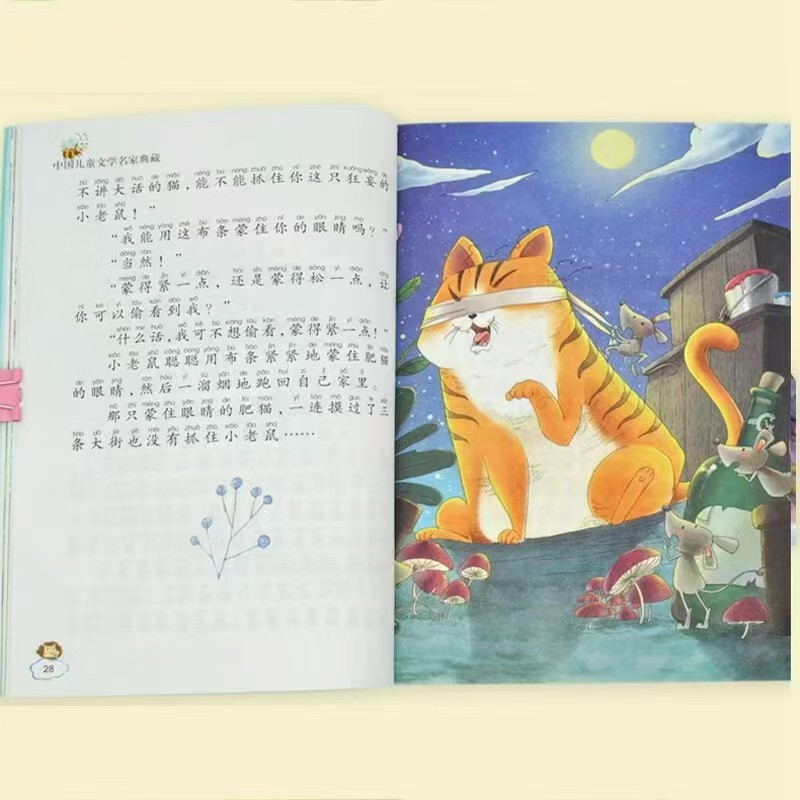 中国儿童文学名家典藏
不讲大话的猫，能不能抓住你这只狂妄的
小老鼠！”
“我能用这布条蒙住你的眼睛吗？”
“当然！”
“蒙得紧一点，还是蒙得松一点，让
你可以偷看到我？”
“什么话，我可不想偷看，蒙得紧一点！”
小老鼠聪聪用布条紧紧地蒙住肥猫
的眼睛，然后一溜烟地跑回自己家里。
那只蒙住眼睛的肥猫，一连摸过了三
条大街也没有抓住小老鼠……
28